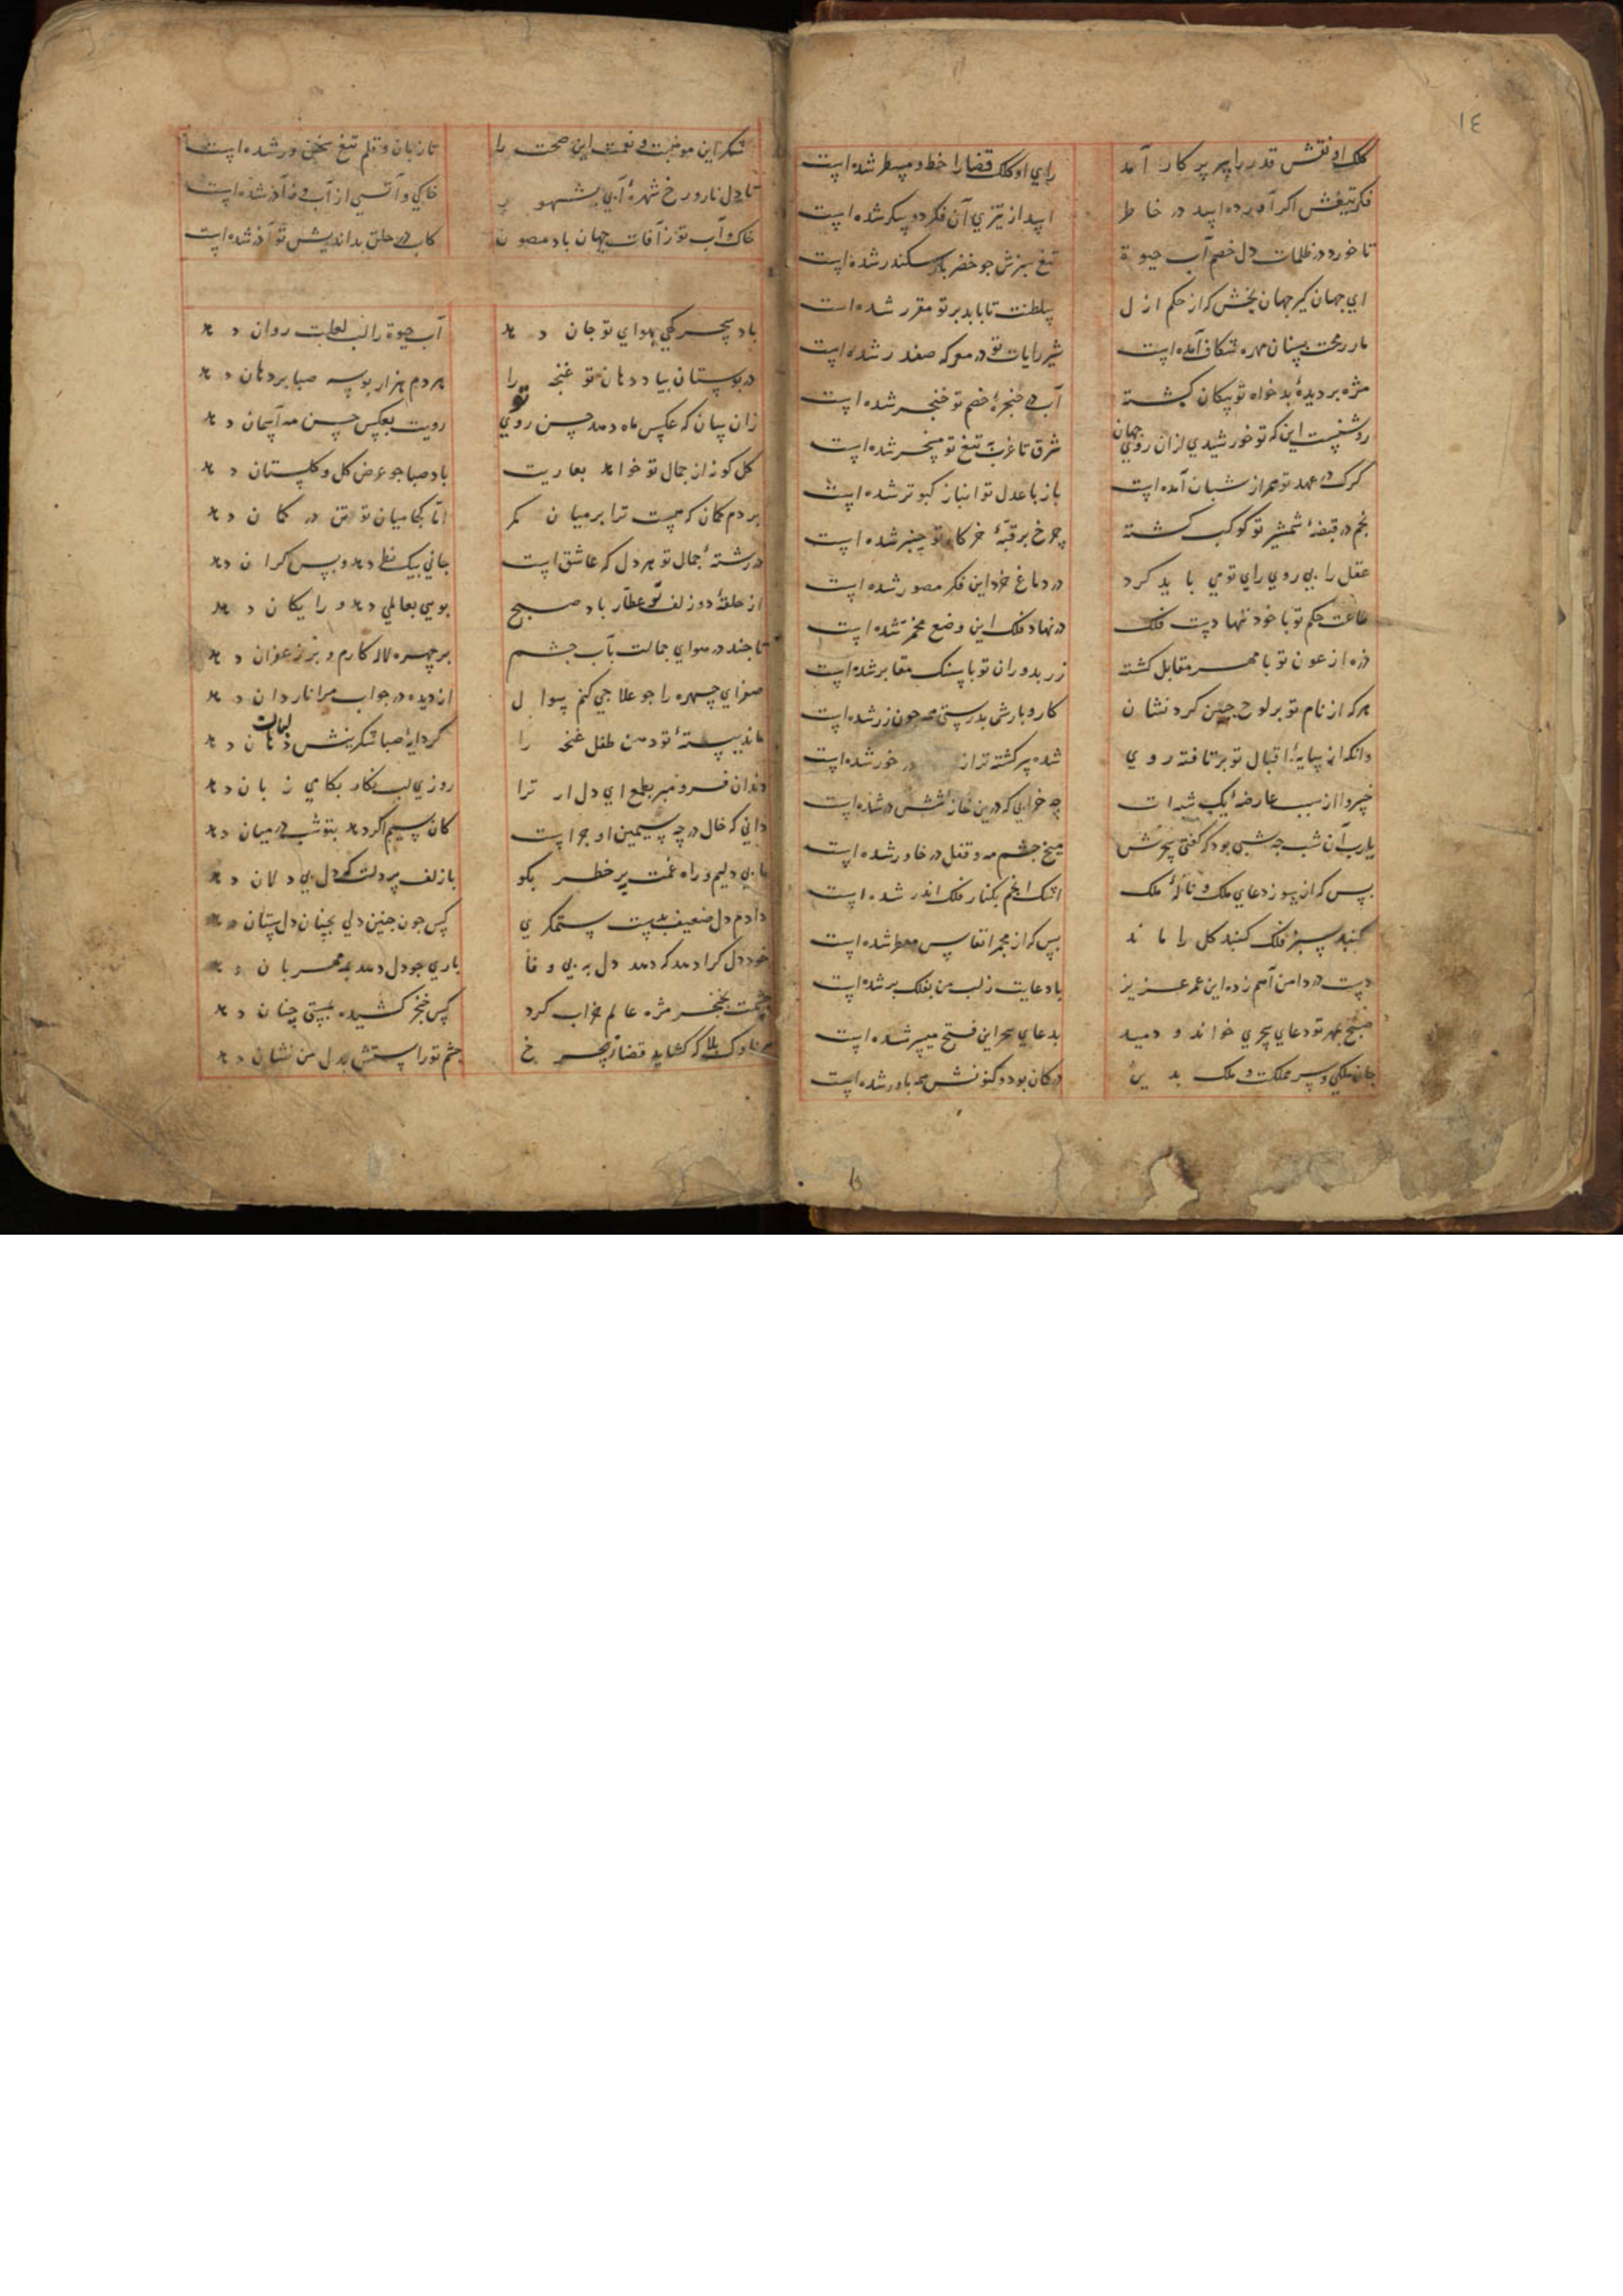 ١٤
کلک او نقش قدر را پر پرکار آمد رای او کلک قضا را خط و مسطر شده است
فکر تیغش اکر آورده اسد در خاطر اسد از تیزی آن فکر دو پیکر شده است
تا خورد در ظلمات دل خصم آب حیوة تیغ سبزش جو خضر یار سکندر شده است
ای جهان کیر جهان بخش که از حکم ازل سلطنت تا بابد بر تو مقرر شده است
مار رمحت بسنان مهره شکاف آمده است شیر رایات تو در معرکه صفدر شده است
مژه بر دیدهٔ بدخواه تو پیکان کشته آب در حنجرهٔ خصم تو خنجر شده است
روشنست این که تو خورشیدی از ان روی جهان شرق تا غرب به تیغ تو مسخر شده است
کرک در عهد تو همراز شبان آمده است باز با عدل تو انباز کبوتر شده است
نجم در قبضهٔ شمشیر تو کوکب کشته چرخ بر قبهٔ خرکاه تو چنبر شده است
عقل را بی روی رای تو می باید کرد در دماغ خرد این فکر مصور شده است
طاعت حکم تو با خود نهادست فلک در نهاد فلک این وضع مخمر شده است
ذره از عون تو با مهر مقابل کشته زر بدوران تو با سنک مقابر شده است
هر که از نام تو بر لوح جبین کرد نشان کار و بارش بدرستی همه جون زر شده است
وانکه از سایهٔ اقبال تو بر تافته روی شده سر کشته تر از در خور شده است
خسروا از سبب عارضهٔ یک شبه ات چه خرابی که درین خانهٔ شش در شده است
یارب آن شب چه شبی بود که کفتی سحرش میخ جشم مه و قفل در خاور شده است
بس که از سوز دعای ملک و نالهٔ ملک اشک انجم بکنار فلک اندر شده است
کنبد سبز فلک کنبد کل را ماند بس که از مجمر انفاس معطر شده است
دست در دامن آهم زده این عمر عزیز با دعایت ز لب من بفلک بر شده است
صبح بهر تو دعای سحری خواند و دمید بدعای سحر این فتح میسر شده است
جان ملکی و سر مملکت و ملک بدین در کمان بود و کنونش همه باور شده است
شکر این موهبت و نعمت این صحت را تا زبان و قلم تیغ سخن ور شده است
تا دل نار و رخ شهرهٔ آبی بشهور خاکی و آتشی از آب و آذر شده است
خاک و آب تو ز آفات جهان باد مصون کاب در حلق بد اندیش تو آذر شده است
باد سحر کهی بهوای تو جان دهد آب حیوة را لب لعلت روان دهد
در بوستان بیاد دهان تو غنجه را هر دم هزار بوسه صبا بر دهان دهد
زان سان که عکس ماه دهد حسن روی تو رویت بعکس حسن مه آسمان دهد
کل کونه از جمال تو خواهد بعاریت باد صبا جو عرض کل و کلستان دهد
مردم کمان که هست ترا بر میان کمر اما کجا میان تو تن در کمان دهد
در رشتهٔ جمال تو هر دل که عاشق است جانی بیک نظر دهد و بس کران دهد
از حلقهٔ دو زلف تو عطار باد صبح بویی بعالمی دهد و رایکان دهد
تا جند در هوای جمالت بآب جشم بر چهره لاله کارم و بر زعفران دهد
صفرای چهره را جو علاجی کنم سوال از دیده در جواب مرا ناردان دهد
ماند ببستهٔ تو دهن طفل غنجه را کر دایهٔ صبا شکرینش لبان دهد
دندان فرو مبر بطمع ای دل ار ترا روزی لب نکار بکامی زبان دهد
دانی که خال در چه سیمین او چراست کان سیم اکر دهد بتو شب در میان دهد
ما بی دلیم و راه غمت پر خطر بکو با زلف پر دلت که دل بی دلان دهد
دادم دل ضعیف بدست ستمکری کس جون جنین دلی بچنان دلستان دهد
خود دل کرا دهد که دهد دل به بی وفا باری جو دل دهد بمه مهربان دهد
جشمت بخنجر مژه عالم خراب کرد کس خنجر کشیده بمستی جنان دهد
هر ناوک بلا که کشاید قضا ز چرخ جشم تو راستش بدل من نشان دهد